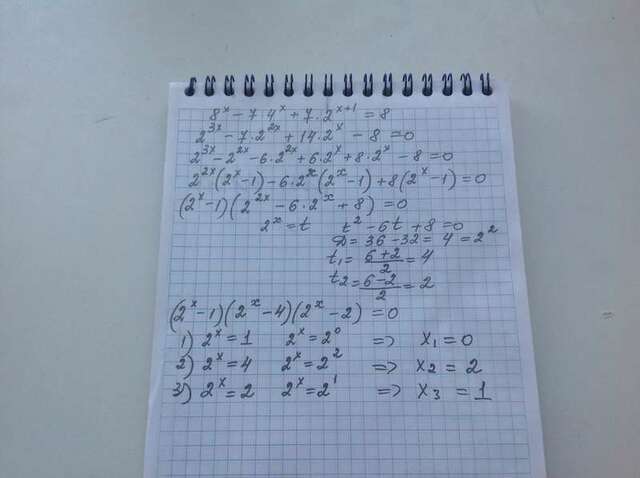 8^x - 7·4^x + 7·2^{x+1} = 8
2^{3x} - 7·2^{2x} + 14·2^x - 8 = 0
2^{3x} - 2^{2x} - 6·2^{2x} + 6·2^x + 8·2^x - 8 = 0
2^{2x}(2^x - 1) - 6·2^x(2^x - 1) + 8(2^x - 1) = 0
(2^x - 1)(2^{2x} - 6·2^x + 8) = 0
2^x = t t^2 - 6t + 8 = 0
D = 36 - 32 = 4 = 2^2
t_1 = \frac{6+2}{2} = 4
t_2 = \frac{6-2}{2} = 2
(2^x - 1)(2^x - 4)(2^x - 2) = 0
1) 2^x = 1 2^x = 2^0 => x_1 = 0
2) 2^x = 4 2^x = 2^2 => x_2 = 2
3) 2^x = 2 2^x = 2^1 => x_3 = 1